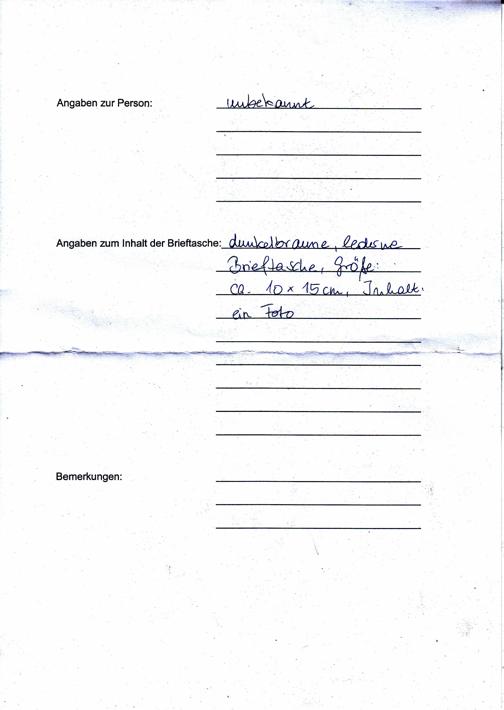 Angaben zur Person: unbekannt
Angaben zum Inhalt der Brieftasche: dunkelbraune, lederne
Brieftasche, Größe:
ca. 10 x 15 cm, Inhalt:
ein Foto
Bemerkungen: